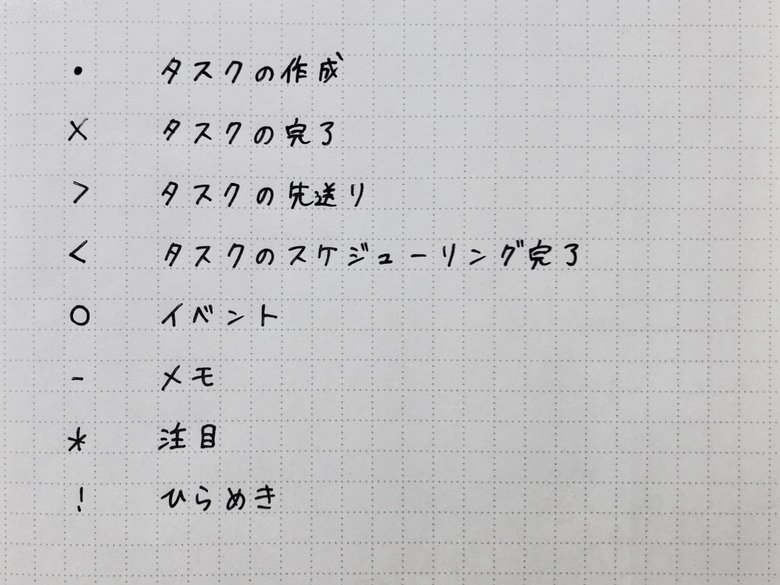 • タスクの作成
× タスクの完了
> タスクの先送り
< タスクのスケジューリング完了
○ イベント
- メモ
* 注目
! ひらめき